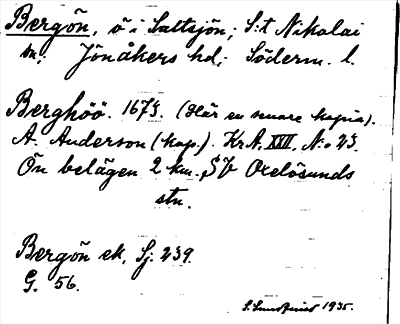 Bergön, ö i Saltsjön; S:t Nikolai
sn; Jönåkers hd; Söderm. l.
Berghöö. 1673. (Här en senare kopia).
A. Anderson (kop.). Kr.A. XXII, N:o 23.
Ön belägen 2 km. SV Oxelösunds
stn.
Bergön ek, Sj. 239.
G. 56.
1935.